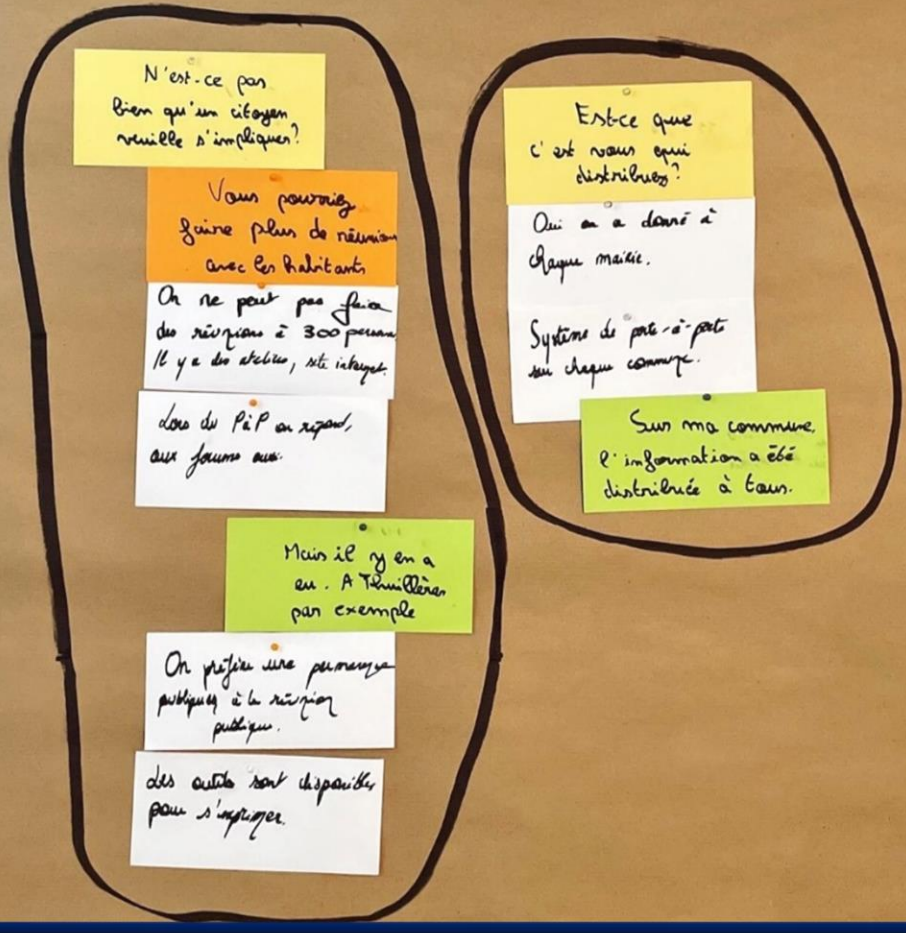 N'est-ce pas
bien qu'un citoyen
veuille s'impliquer?
Vous pourriez
faire plus de réunions
avec les habitants
On ne peut pas faire
des réunions à 300 personnes
Il y a des ateliers, site internet.
Lors du PàP on répond,
aux forums aussi.
Mais il y en a
eu. A Thuillères
par exemple
On préfère une permanence
publique à la réunion
publique.
Les outils sont disponibles
pour s'exprimer.
Est-ce que
c'est vous qui
distribuez?
Oui on a donné à
chaque mairie.
Système de porte-à-porte
sur chaque commune.
Sur ma commune,
l'information a été
distribuée à tous.